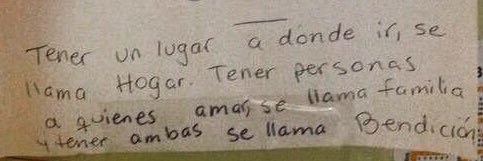 Tener un lugar a donde ir, se
llama Hogar. Tener personas
a quienes amar, se llama familia
y tener ambas se llama Bendición